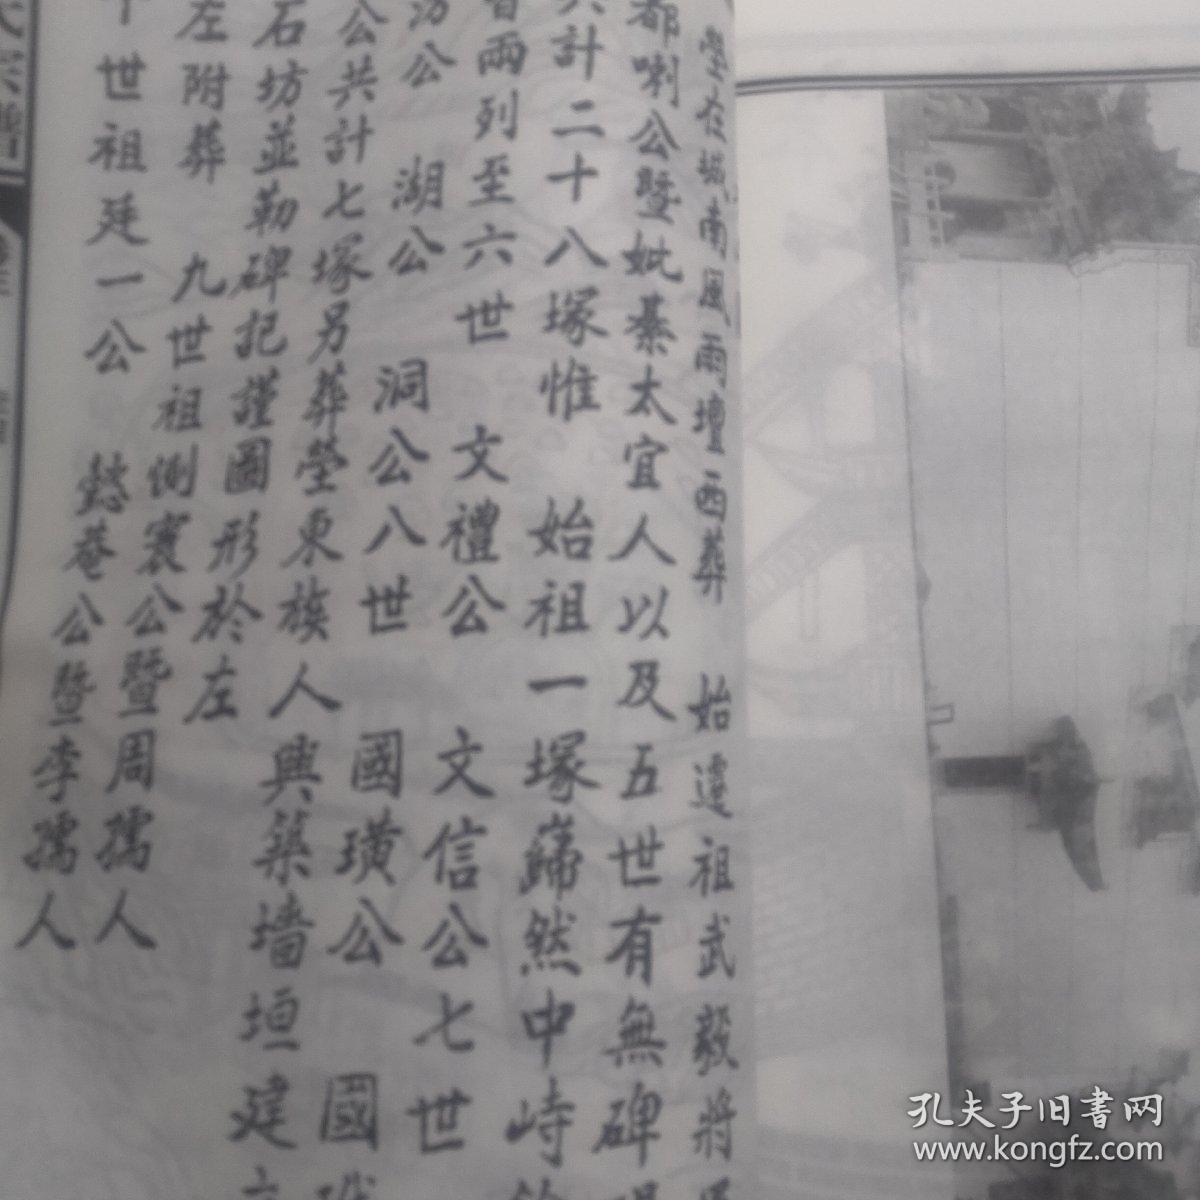 塋在城南風雨壇西葬 始遷祖武毅將
都喇公暨妣綦太宜人以及五世有無碑
共計二十八塚惟 始祖一塚巋然中峙
皆兩列至六世 文禮公 文信公七世
汸公 湖公 洞公八世 國璜公 國
公共計七塚另葬塋東族人興築墻垣建
石坊並勒碑記謹圖形於左
左附葬 九世祖側寰公暨周孺人
十世祖廷一公 懿菴公暨李孺人
孔夫子旧书网
www.kongfz.com